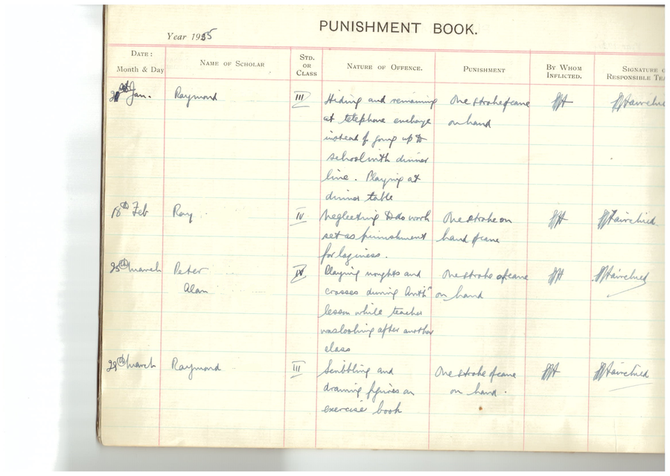 PUNISHMENT BOOK.
Year 1955
DATE: Month & Day
NAME OF SCHOLAR
STD. OR CLASS
NATURE OF OFFENCE.
PUNISHMENT
BY WHOM INFLICTED.
SIGNATURE
RESPONSIBLE TEA
Jan. Raymond III Hiding and remaining One stroke of cane
at telephone exchange on hand
instead of going up to
school with dinner
line. Playing at
dinner table
18th Feb Roy IV Neglecting to do work One stroke on Fairchild
set as punishment hand of cane
for laziness.
25th March Peter IV Playing noughts and One stroke of cane Fairchild
Alan crosses during Arith on hand
lesson while teacher
was looking after another
class
28th March Raymond III Scribbling and One stroke of cane Fairchild
drawing figures on on hand.
exercise book